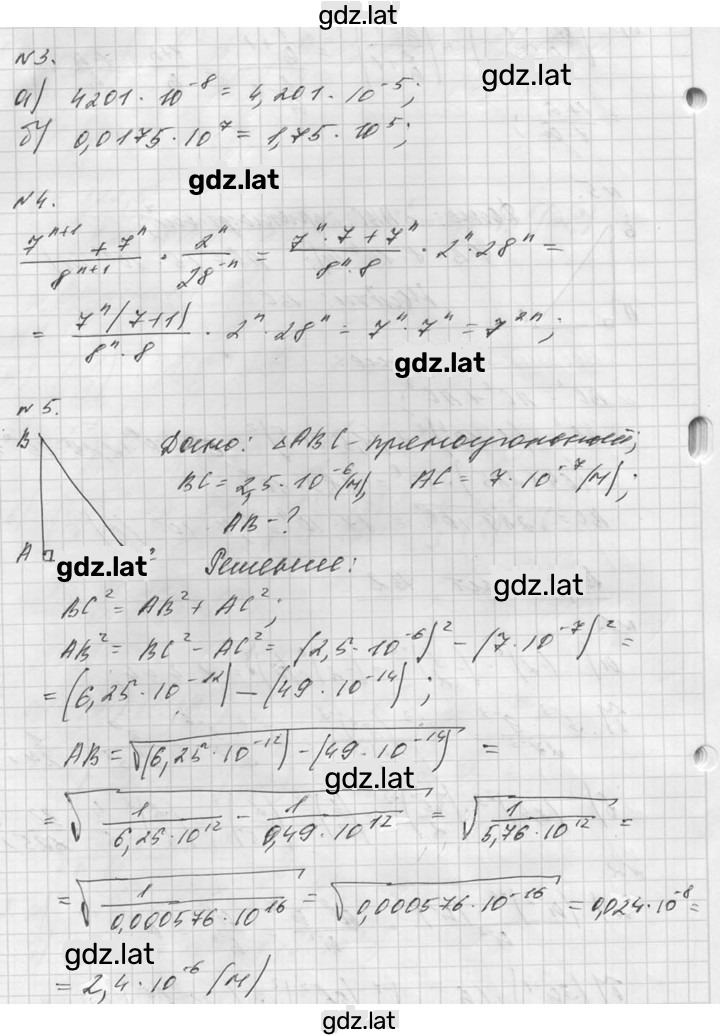 gdz.lat
N3.
gdz.lat
а) 4201 · 10⁻⁸ = 4,201 · 10⁻⁵;
б) 0,0175 · 10⁷ = 1,75 · 10⁵;
gdz.lat
N4.
(7ⁿ⁺¹ + 7ⁿ)/8ⁿ⁺¹ · 2ⁿ/28⁻ⁿ = (7ⁿ · 7 + 7ⁿ)/(8ⁿ · 8) · 2ⁿ · 28ⁿ =
= 7ⁿ(7+1)/(8ⁿ · 8) · 2ⁿ · 28ⁿ = 7ⁿ · 7ⁿ = 7²ⁿ;
gdz.lat
N5.
B Дано: △ABC - прямоугольный;
BC = 2,5 · 10⁻⁶ (м), AC = 7 · 10⁻⁷ (м);
AB - ?
A gdz.lat Решение:
gdz.lat
BC² = AB² + AC²;
AB² = BC² − AC² = (2,5 · 10⁻⁶)² − (7 · 10⁻⁷)² =
= (6,25 · 10⁻¹²) − (49 · 10⁻¹⁴);
AB = √((6,25 · 10⁻¹²) − (49 · 10⁻¹⁴)) =
gdz.lat
= √(1/(6,25 · 10¹²) − 1/(0,49 · 10¹²)) = √(1/(5,76 · 10¹²)) =
= √(1/(0,000576 · 10¹⁶)) = √(0,000576 · 10⁻¹⁶) = 0,024 · 10⁻⁸ =
gdz.lat
= 2,4 · 10⁻⁶ (м)
gdz.lat